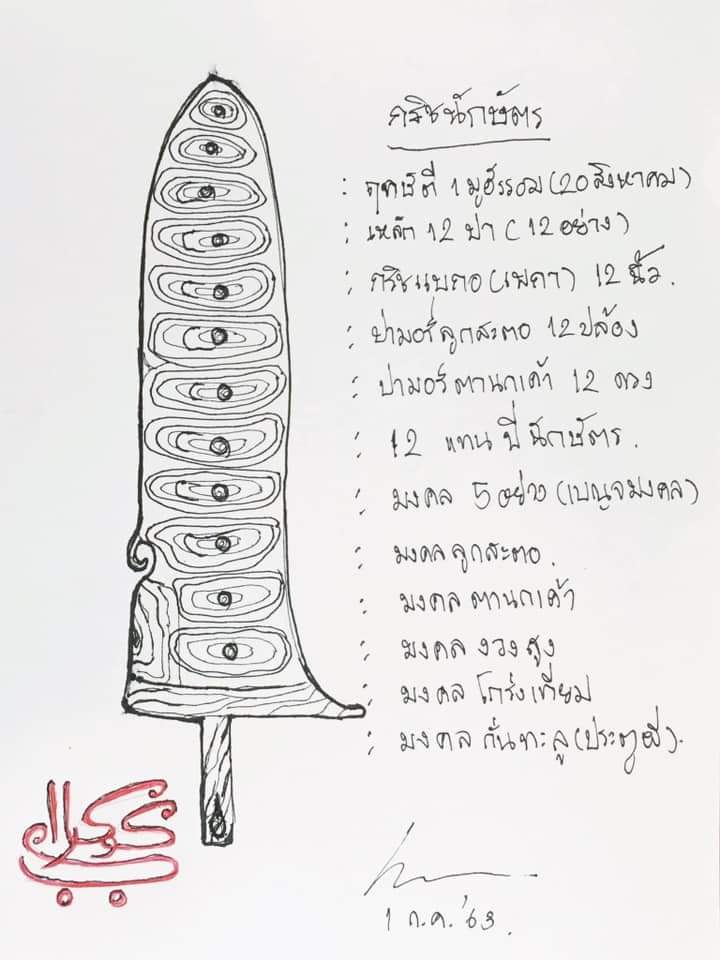 กริชนักษัตร
: ฤกษ์ดี 1 มูฮัรรอม (20 สิงหาคม)
: เหล็ก 12 ป่า (12 อย่าง)
: กริชแบกอ (เพกา) 12 นิ้ว.
: ปามอร์ลูกสะตอ 12 ปล้อง
: ปามอร์ตานกเค้า 12 ดวง
: 12 แทน ปี นักษัตร.
: มงคล 5 อย่าง (เบญจมงคล)
: มงคล ลูกสะตอ.
: มงคล ตานกเค้า
: มงคล งวงสูง
: มงคล โกร่งเทียม
: มงคล กั่นทะลุ (ประตูผี).
1 ก.ค. '63.